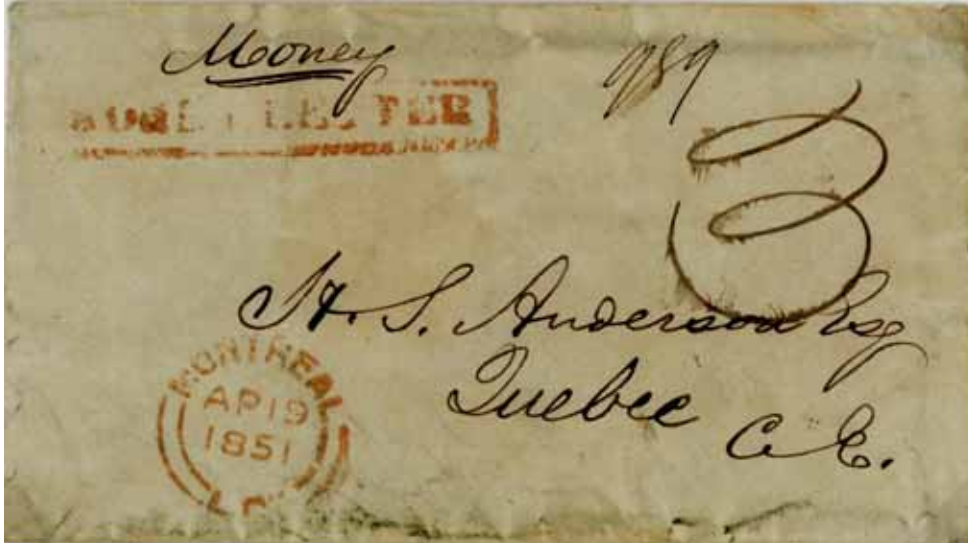 Money
989
MONEY LETTER
3
H. S. Anderson Esq
Quebec
C. E.
MONTREAL
AP 19
1851
L.C.